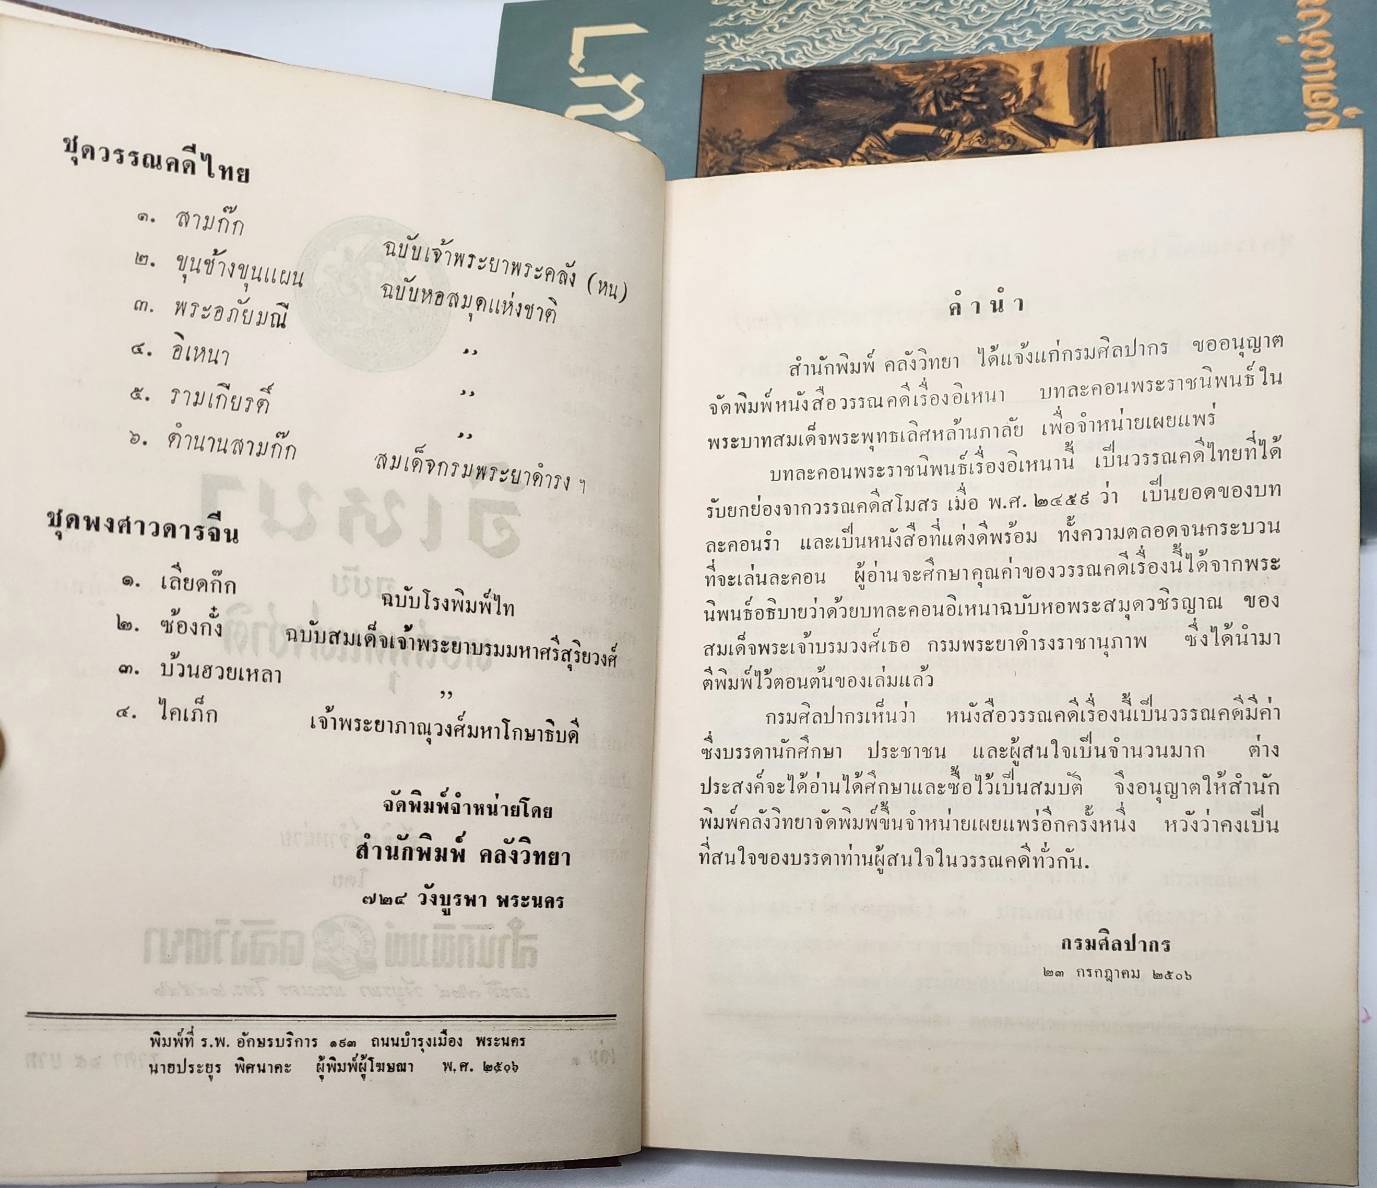 ชุดวรรณคดีไทย
๑. สามก๊ก ฉบับเจ้าพระยาพระคลัง (หน)
๒. ขุนช้างขุนแผน ฉบับหอสมุดแห่งชาติ
๓. พระอภัยมณี ,,
๔. อิเหนา ,,
๕. รามเกียรติ์ ,,
๖. ตำนานสามก๊ก สมเด็จกรมพระยาดำรง ฯ
ชุดพงศาวดารจีน
๑. เลียดก๊ก ฉบับโรงพิมพ์ไท
๒. ซ้องกั๋ง ฉบับสมเด็จเจ้าพระยาบรมมหาศรีสุริยวงศ์
๓. บ้วนฮวยเหลา ,,
๔. ไคเภ็ก เจ้าพระยาภาณุวงศ์มหาโกษาธิบดี
จัดพิมพ์จำหน่ายโดย
สำนักพิมพ์ คลังวิทยา
๗๒๔ วังบูรพา พระนคร
พิมพ์ที่ ร.พ. อักษรบริการ ๑๙๓ ถนนบำรุงเมือง พระนคร
นายประยูร พิศนาคะ ผู้พิมพ์ผู้โฆษณา พ.ศ. ๒๕๐๖
คำนำ
สำนักพิมพ์ คลังวิทยา ได้แจ้งแก่กรมศิลปากร ขออนุญาต
จัดพิมพ์หนังสือวรรณคดีเรื่องอิเหนา บทละคอนพระราชนิพนธ์ใน
พระบาทสมเด็จพระพุทธเลิศหล้านภาลัย เพื่อจำหน่ายเผยแพร่
บทละคอนพระราชนิพนธ์เรื่องอิเหนานี้ เป็นวรรณคดีไทยที่ได้
รับยกย่องจากวรรณคดีสโมสร เมื่อ พ.ศ. ๒๔๕๙ ว่า เป็นยอดของบท
ละคอนรำ และเป็นหนังสือที่แต่งดีพร้อม ทั้งความตลอดจนกระบวน
ที่จะเล่นละคอน ผู้อ่านจะศึกษาคุณค่าของวรรณคดีเรื่องนี้ได้จากพระ
นิพนธ์อธิบายว่าด้วยบทละคอนอิเหนาฉบับหอพระสมุดวชิรญาณ ของ
สมเด็จพระเจ้าบรมวงศ์เธอ กรมพระยาดำรงราชานุภาพ ซึ่งได้นำมา
ตีพิมพ์ไว้ตอนต้นของเล่มแล้ว
กรมศิลปากรเห็นว่า หนังสือวรรณคดีเรื่องนี้เป็นวรรณคดีมีค่า
ซึ่งบรรดานักศึกษา ประชาชน และผู้สนใจเป็นจำนวนมาก ต่าง
ประสงค์จะได้อ่านได้ศึกษาและซื้อไว้เป็นสมบัติ จึงอนุญาตให้สำนัก
พิมพ์คลังวิทยาจัดพิมพ์ขึ้นจำหน่ายเผยแพร่อีกครั้งหนึ่ง หวังว่าคงเป็น
ที่สนใจของบรรดาท่านผู้สนใจในวรรณคดีทั่วกัน.
กรมศิลปากร
๒๓ กรกฎาคม ๒๕๐๖